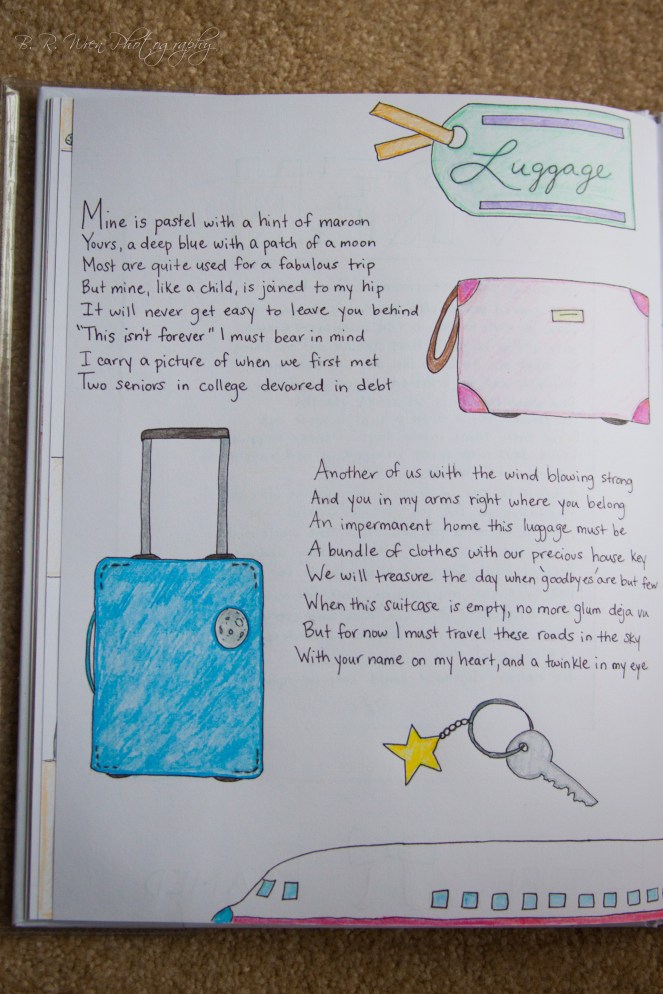 B. R. Wren Photography
Luggage
Mine is pastel with a hint of maroon
Yours, a deep blue with a patch of a moon
Most are quite used for a fabulous trip
But mine, like a child, is joined to my hip
It will never get easy to leave you behind
"This isn't forever" I must bear in mind
I carry a picture of when we first met
Two seniors in college devoured in debt
Another of us with the wind blowing strong
And you in my arms right where you belong
An impermanent home this luggage must be
A bundle of clothes with our precious house key
We will treasure the day when 'goodbyes' are but few
When this suitcase is empty, no more glum déja vu
But for now I must travel these roads in the sky
With your name on my heart, and a twinkle in my eye